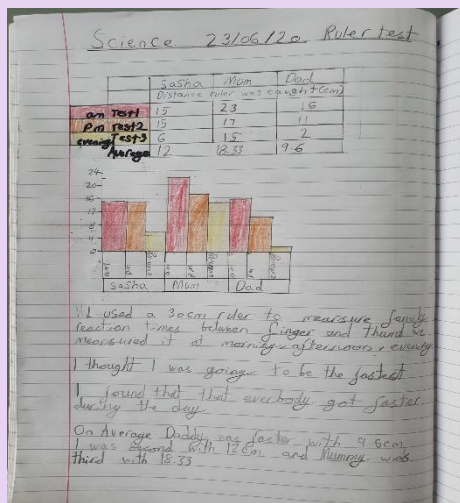 Science 23/06/20 Ruler test
Sasha Mum Dad
Distance ruler was caught (cm)
am Test 1 15 23 16
Pm Test 2 15 17 11
evening Test 3 6 15 2
Average 12 18.33 9.6
24
20
16
12
8
4
0
am pm evening am pm evening am pm evening
Sasha Mum Dad
I used a 30cm ruler to measure family
reaction times between finger and thumb we
measured it at morning, afternoon, evening
I thought I was going to be the fastest
I found that that everbody got faster
during the day.
On Average Daddy was faster with 9.6cm
I was second with 12cm and Mummy was
third with 18.33